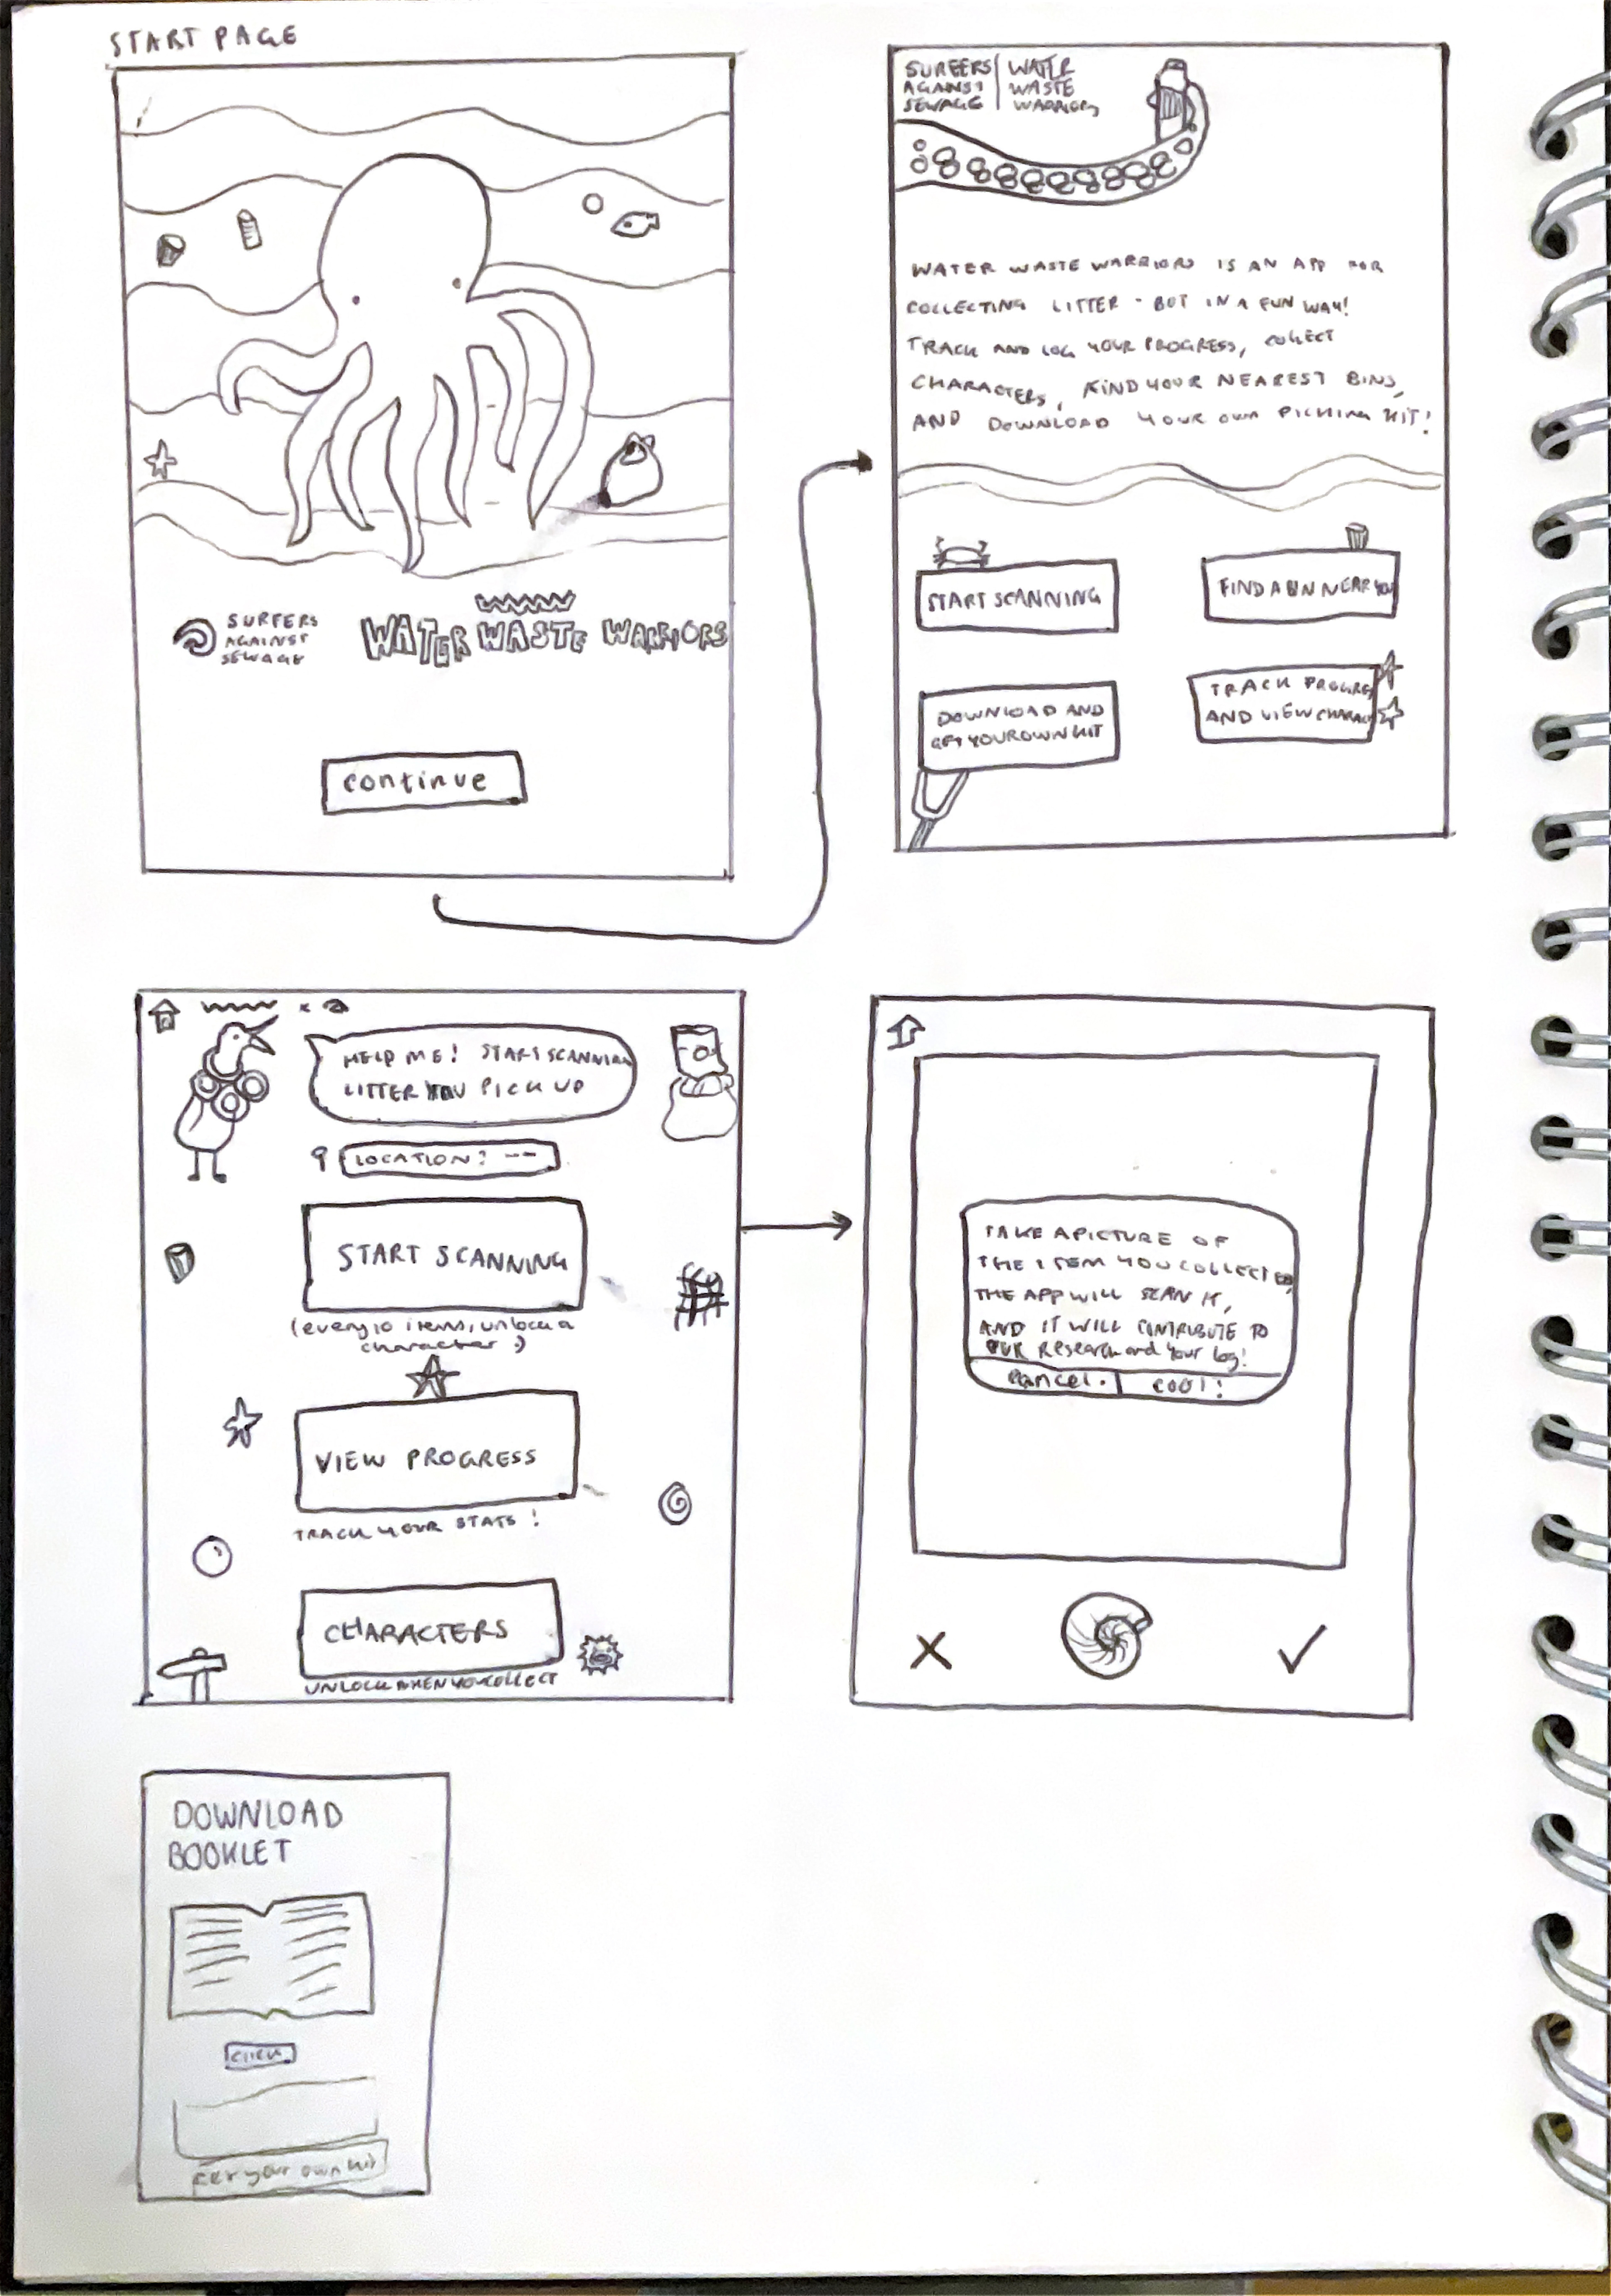 START PAGE
SURFERS
AGAINST
SEWAGE
WATER WASTE WARRIORS
continue
SURFERS
AGAINST
SEWAGE
WATER
WASTE
WARRIORS
WATER WASTE WARRIORS IS AN APP FOR
COLLECTING LITTER - BUT IN A FUN WAY!
TRACK AND LOG YOUR PROGRESS, COLLECT
CHARACTERS, FIND YOUR NEAREST BINS,
AND DOWNLOAD YOUR OWN PICKING KIT!
START SCANNING
FIND A BIN NEAR YOU
DOWNLOAD AND
GET YOUR OWN KIT
TRACK PROGRES
AND VIEW CHARAC
HELP ME! START SCANNING
LITTER YOU PICK UP
LOCATION: --
START SCANNING
(every 10 items, unlock a
character :)
VIEW PROGRESS
TRACK YOUR STATS!
CHARACTERS
UNLOCK WHEN YOU COLLECT
TAKE A PICTURE OF
THE ITEM YOU COLLECTED,
THE APP WILL SCAN IT,
AND IT WILL CONTRIBUTE TO
OUR Research and Your log!
cancel.
cool!
DOWNLOAD
BOOKLET
click
Get your own kit